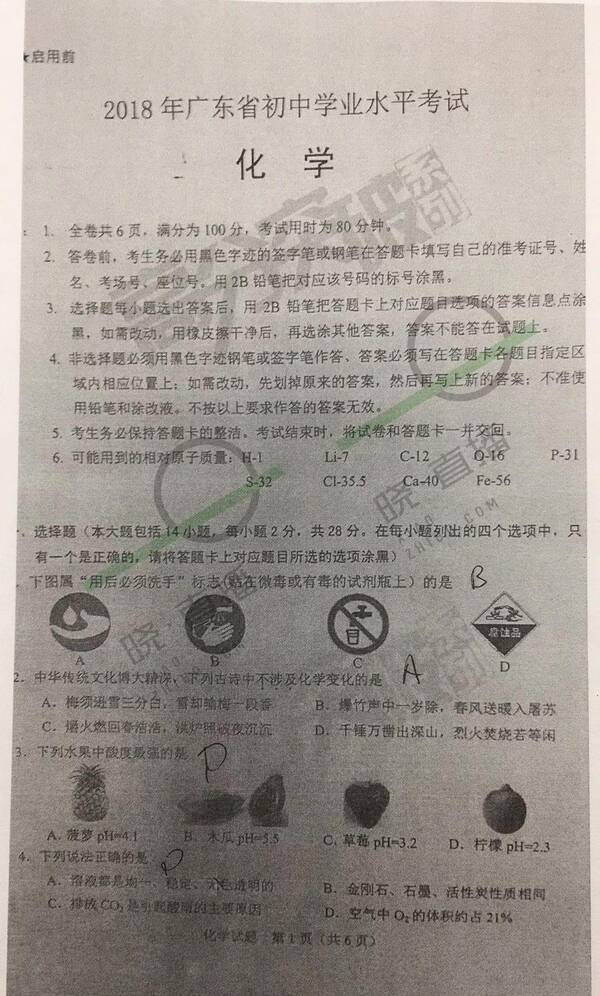 ★启用前
2018年广东省初中学业水平考试
化 学
: 1. 全卷共6页，满分为100分，考试用时为80分钟。
2. 答卷前，考生务必用黑色字迹的签字笔或钢笔在答题卡填写自己的准考证号、姓
名、考场号、座位号。用2B铅笔把对应该号码的标号涂黑。
3. 选择题每小题选出答案后，用2B铅笔把答题卡上对应题目选项的答案信息点涂
黑，如需改动，用橡皮擦干净后，再选涂其他答案，答案不能答在试题上。
4. 非选择题必须用黑色字迹钢笔或签字笔作答、答案必须写在答题卡各题目指定区
域内相应位置上；如需改动，先划掉原来的答案，然后再写上新的答案；不准使
用铅笔和涂改液。不按以上要求作答的答案无效。
5. 考生务必保持答题卡的整洁。考试结束时，将试卷和答题卡一并交回。
6. 可能用到的相对原子质量：H-1 Li-7 C-12 O-16 P-31
S-32 Cl-35.5 Ca-40 Fe-56
、选择题（本大题包括14小题，每小题2分，共28分。在每小题列出的四个选项中，只
有一个是正确的，请将答题卡上对应题目所选的选项涂黑）
. 下图属“用后必须洗手”标志(贴在微毒或有毒的试剂瓶上）的是 B
腐蚀品
A B C D
2. 中华传统文化博大精深，下列古诗中不涉及化学变化的是 A
A. 梅须逊雪三分白，雪却输梅一段香 B. 爆竹声中一岁除，春风送暖入屠苏
C. 爝火燃回春浩浩，洪炉照破夜沉沉 D. 千锤万凿出深山，烈火焚烧若等闲
3. 下列水果中酸度最强的是 D
A. 菠萝 pH=4.1 B. 木瓜 pH=5.5 C. 草莓 pH=3.2 D. 柠檬 pH=2.3
4. 下列说法正确的是 D
A. 溶液都是均一、稳定、无色透明的 B. 金刚石、石墨、活性炭性质相同
C. 排放CO₂是引起酸雨的主要原因 D. 空气中O₂的体积约占21%
化学试题 第1页（共6页）
晓·直播
晓·直播